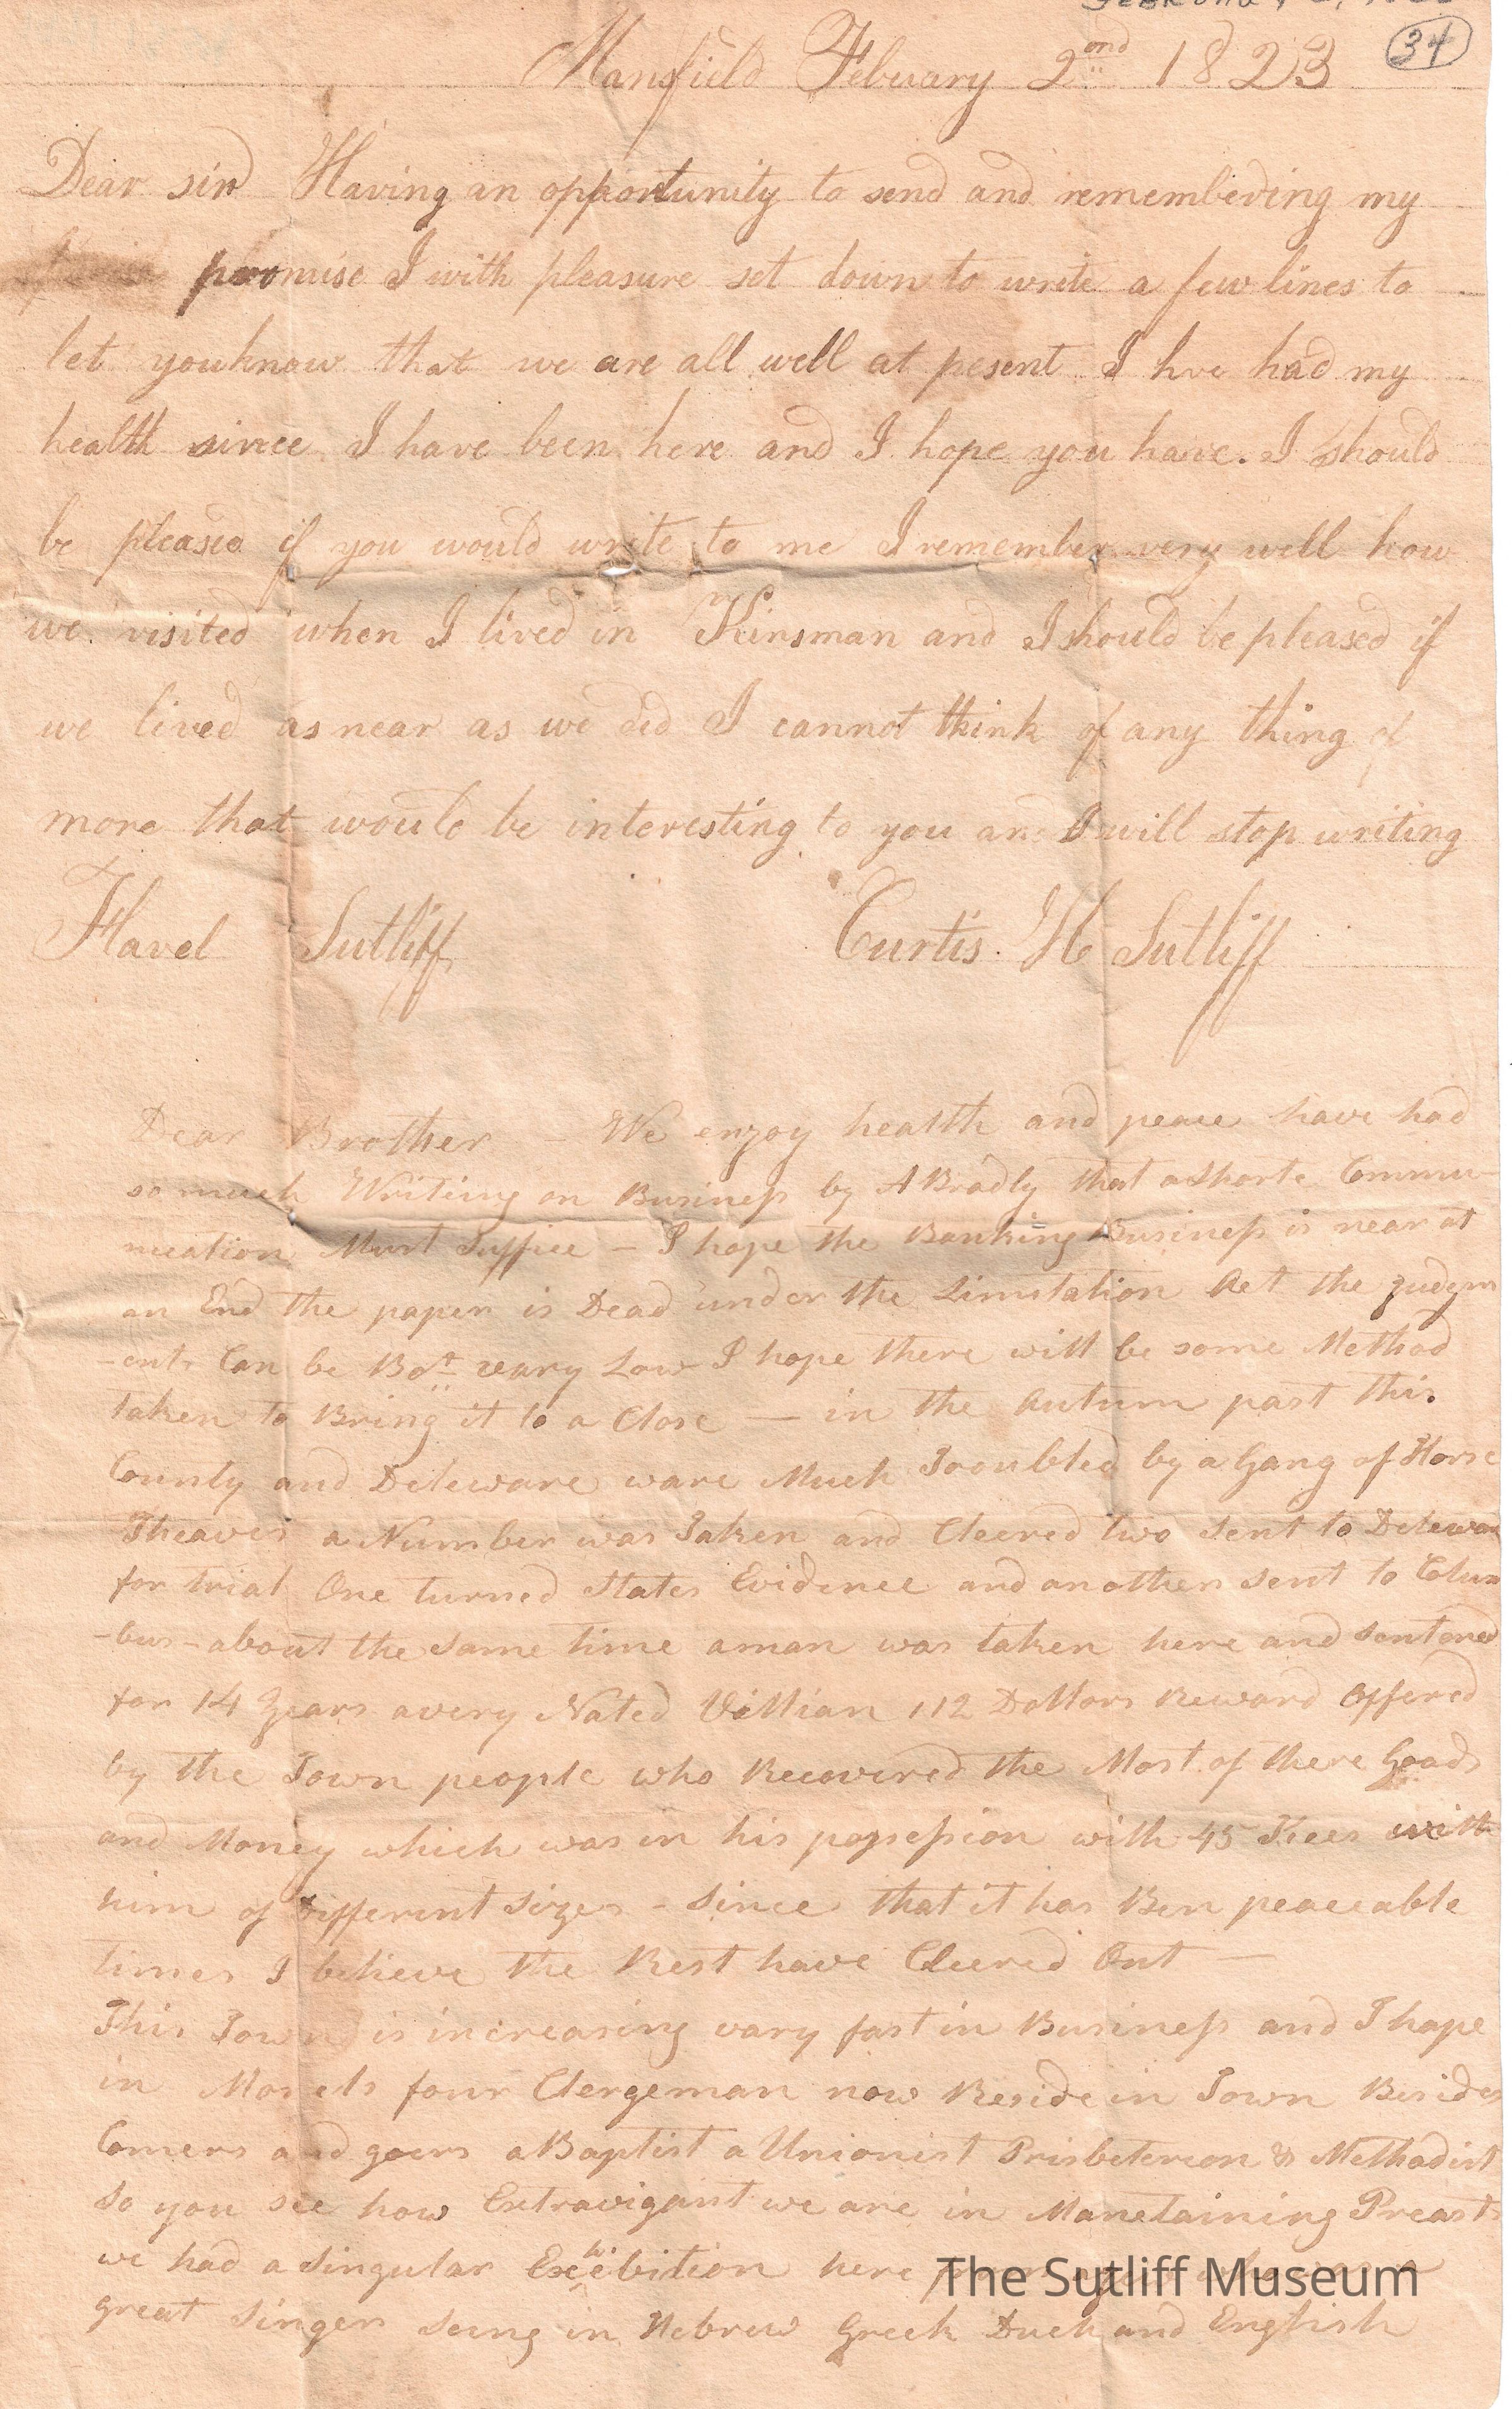 34
Mansfield Febuary 2ond 1823
Dear sir Having an opportunity to send and remembering my
promise I with pleasure set down to write a few lines to
let you know that we are all well at pesent I hve had my
health since I have been here and I hope you have. I should
be pleased if you would write to me I remember very well how
we visited when I lived in Kinsman and I should be pleased if
we lived as near as we did I cannot think of any thing of
more that would be interesting to you and I will stop writing
Flavel Sutliff Curtis. H Sutliff
Dear Brother – We enjoy health and peace have had
so much Writing on Business by A Bradly that a Shorte Commu-
nication Must Suffice – I hope the Banking Business is near at
an End the paper is Dead under the Limitation Act the judgm
-ents Can be Bot vary Low I hope there will be some Method
taken to Bring it to a Close — in the Autum past this
County and Deleware ware Much Troubled by a Gang of Horse
Theaves a Number was Taken and Cleered two sent to Delewar
for trial One turned States Evidence and another sent to Colum
-bus – about the same time a man was taken here and sentened
for 14 Years a very Noted Villian 112 Dollors Reward Offered
by the Town people who Recovered the Most of there Goods
and Money which was in his possession with 45 Kees with
him of Different Sizes – Since that it has Ben peaceable
times I believe the Rest have Cleered Out —
This Town is increasing vary fast in Business and I hope
in Morels four Clergeman now Reside in Town Besides
Comers and goers a Baptist a Unionist Prisbetereon & Methodist
So you see how Extravigant we are in Manetaining Preasts
we had a Singular Exehibition here
great Singer Seung in Hebrew Greek Duch and English
The Sutliff Museum